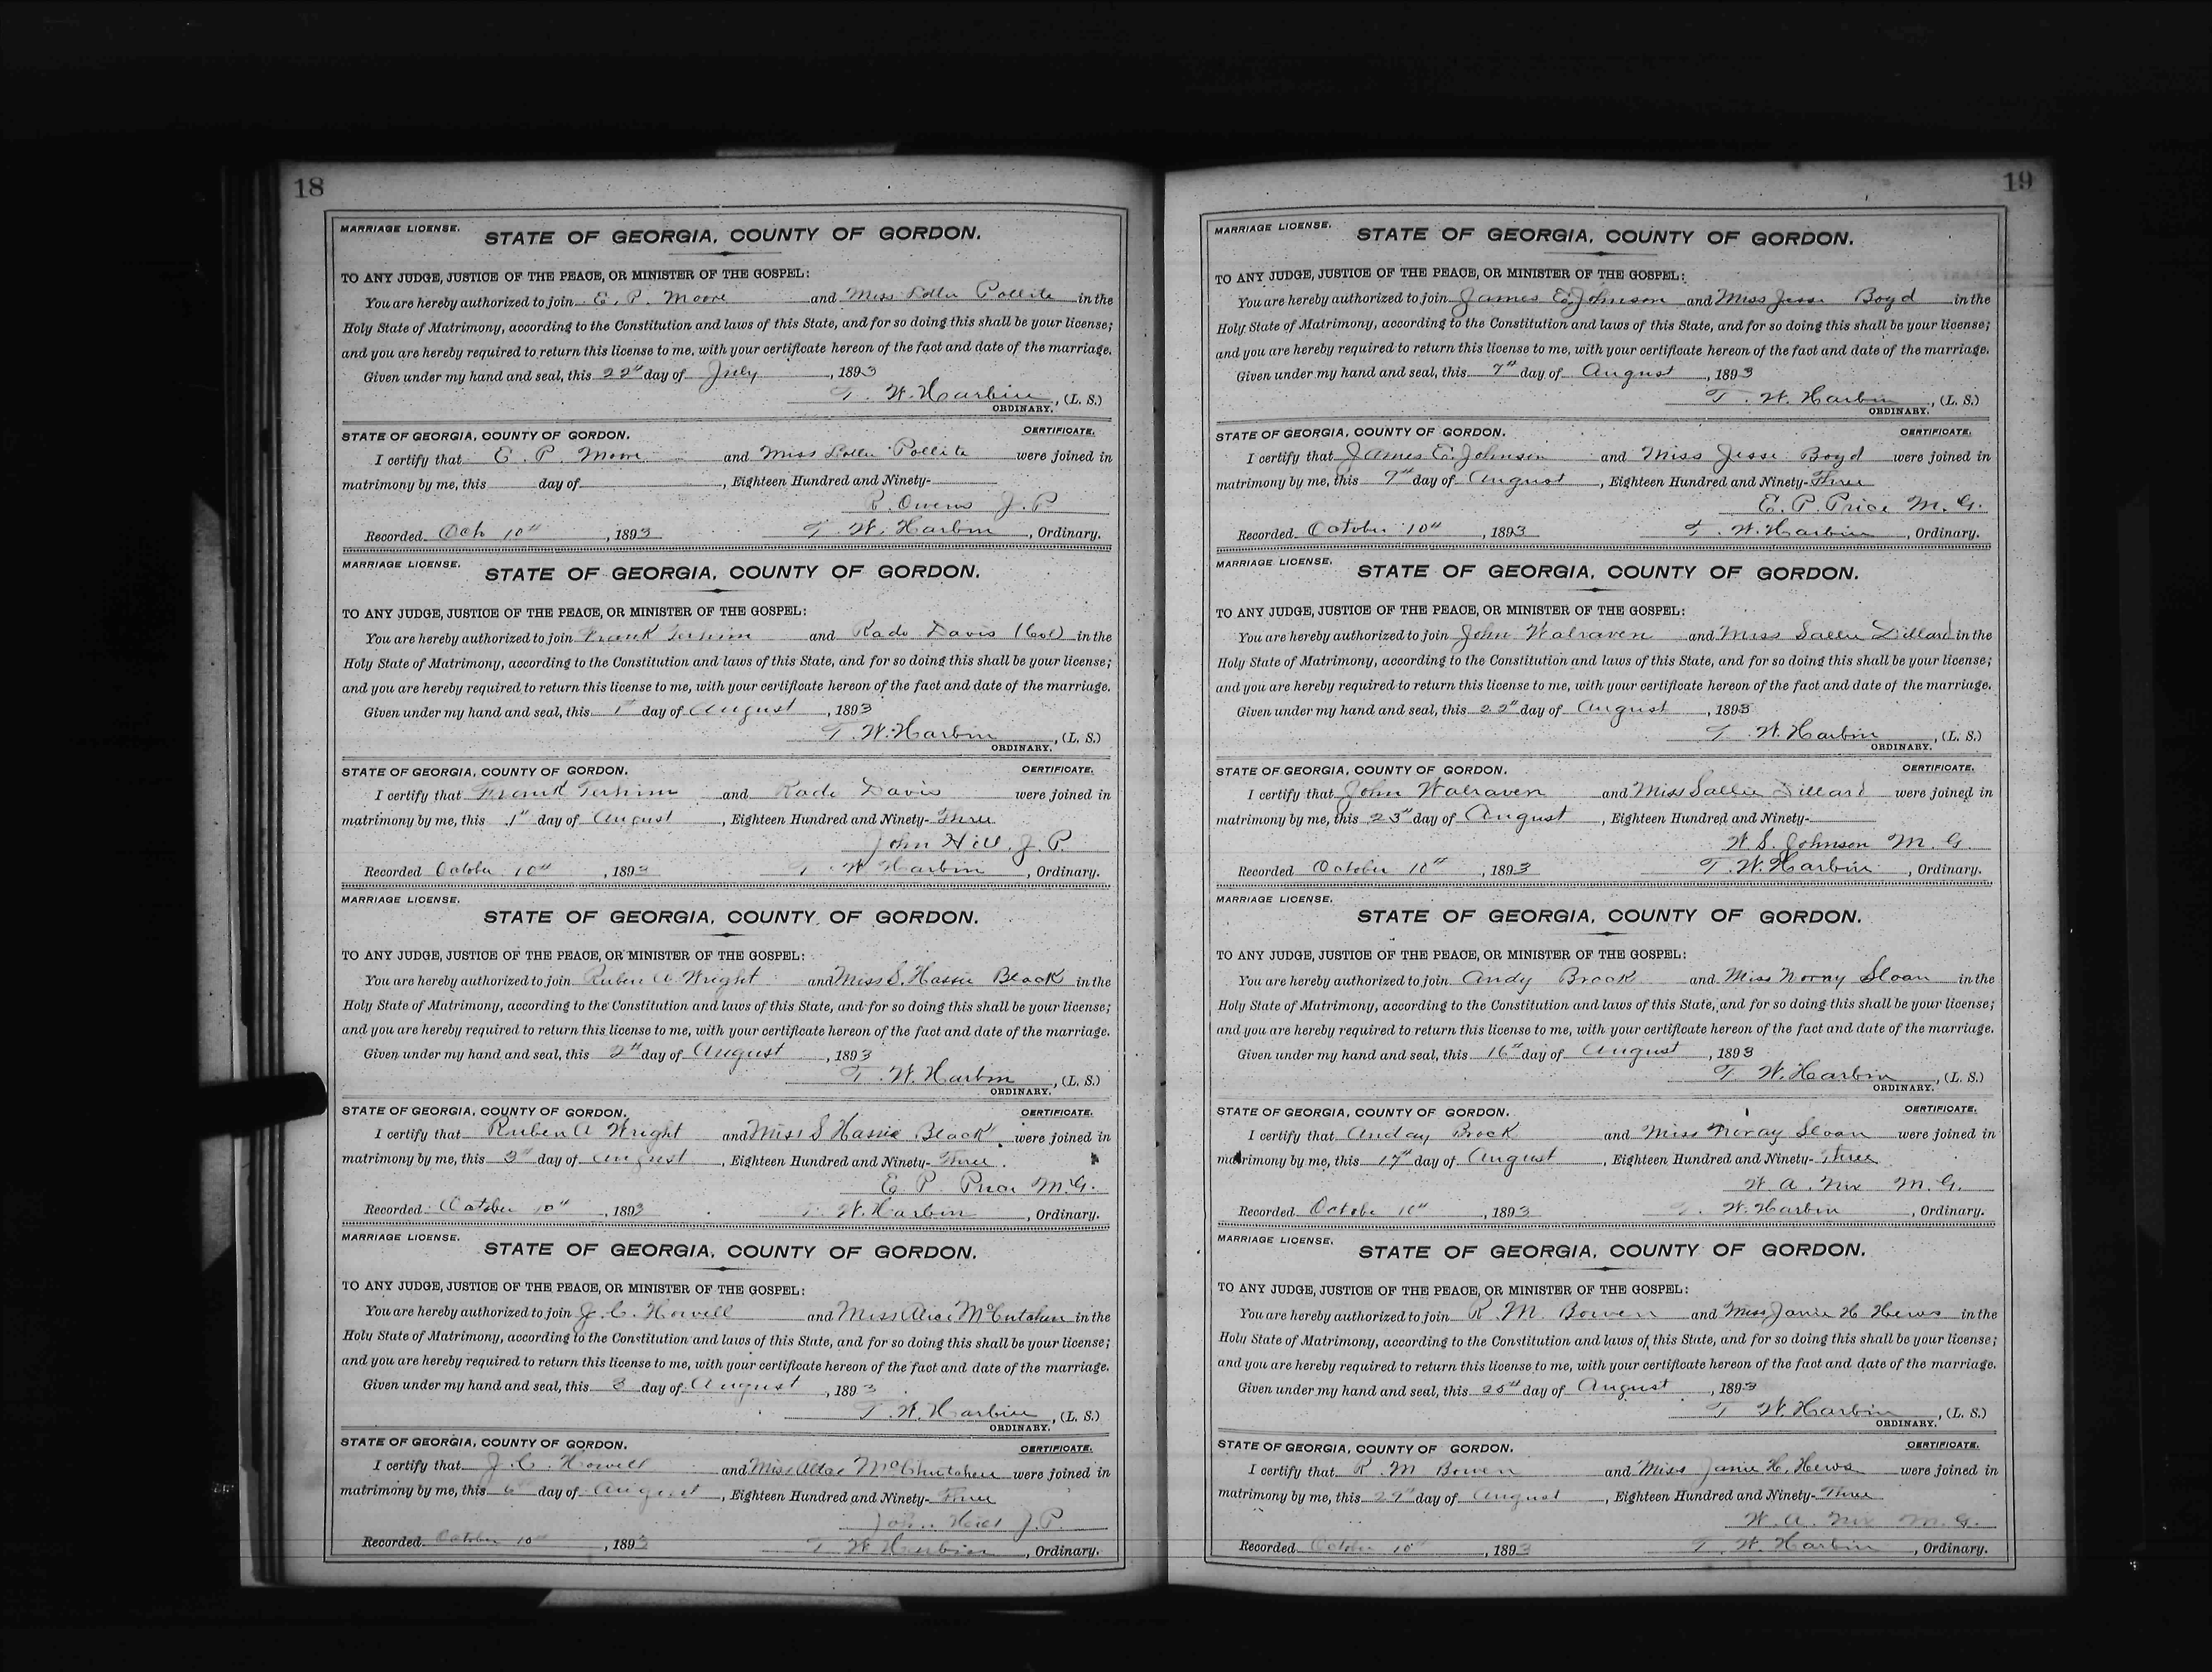 18
MARRIAGE LICENSE.
STATE OF GEORGIA, COUNTY OF GORDON.
TO ANY JUDGE, JUSTICE OF THE PEACE, OR MINISTER OF THE GOSPEL:
You are hereby authorized to join E. P. Moore and Miss Lollu Pollite in the
Holy State of Matrimony, according to the Constitution and laws of this State, and for so doing this shall be your license;
and you are hereby required to return this license to me, with your certificate hereon of the fact and date of the marriage.
Given under my hand and seal, this 22" day of July, 1893
T. W. Harbin, (L. S.)
ORDINARY.
STATE OF GEORGIA, COUNTY OF GORDON. CERTIFICATE.
I certify that E. P. Moore and Miss Lollu Pollite were joined in
matrimony by me, this day of , Eighteen Hundred and Ninety-
R. Owens J. P
Recorded Oct 10th, 1893 T. W. Harbin, Ordinary.
MARRIAGE LICENSE.
STATE OF GEORGIA, COUNTY OF GORDON.
TO ANY JUDGE, JUSTICE OF THE PEACE, OR MINISTER OF THE GOSPEL:
You are hereby authorized to join Frank and Rado Davis (Col) in the
Holy State of Matrimony, according to the Constitution and laws of this State, and for so doing this shall be your license;
and you are hereby required to return this license to me, with your certificate hereon of the fact and date of the marriage.
Given under my hand and seal, this 1st day of August, 1893
T. W. Harbin, (L. S.)
ORDINARY.
STATE OF GEORGIA, COUNTY OF GORDON. CERTIFICATE.
I certify that Frank and Rado Davis were joined in
matrimony by me, this 1st day of August, Eighteen Hundred and Ninety-Three
John Hill, J. P.
Recorded October 10th, 1893 T. W. Harbin, Ordinary.
MARRIAGE LICENSE.
STATE OF GEORGIA, COUNTY OF GORDON.
TO ANY JUDGE, JUSTICE OF THE PEACE, OR MINISTER OF THE GOSPEL:
You are hereby authorized to join Ruben A. Wright and Miss S. Hassie Black in the
Holy State of Matrimony, according to the Constitution and laws of this State, and for so doing this shall be your license;
and you are hereby required to return this license to me, with your certificate hereon of the fact and date of the marriage.
Given under my hand and seal, this 2" day of August, 1893
T. W. Harbin, (L. S.)
ORDINARY.
STATE OF GEORGIA, COUNTY OF GORDON. CERTIFICATE.
I certify that Ruben A Wright and Miss S Hassie Black were joined in
matrimony by me, this 3" day of August, Eighteen Hundred and Ninety-Three.
E. P. Price M. G.
Recorded October 10th, 1893 T. W. Harbin, Ordinary.
MARRIAGE LICENSE.
STATE OF GEORGIA, COUNTY OF GORDON.
TO ANY JUDGE, JUSTICE OF THE PEACE, OR MINISTER OF THE GOSPEL:
You are hereby authorized to join J. C. Howell and Miss Alice McCutchen in the
Holy State of Matrimony, according to the Constitution and laws of this State, and for so doing this shall be your license;
and you are hereby required to return this license to me, with your certificate hereon of the fact and date of the marriage.
Given under my hand and seal, this 3 day of August, 1893
T. W. Harbin, (L. S.)
ORDINARY.
STATE OF GEORGIA, COUNTY OF GORDON. CERTIFICATE.
I certify that J. C. Howell and Miss McChutchen were joined in
matrimony by me, this 6 day of August, Eighteen Hundred and Ninety-Three
John J. P.
Recorded October 10th, 1893 T. W. Harbin, Ordinary.
19
MARRIAGE LICENSE.
STATE OF GEORGIA, COUNTY OF GORDON.
TO ANY JUDGE, JUSTICE OF THE PEACE, OR MINISTER OF THE GOSPEL:
You are hereby authorized to join James E. Johnson and Miss Jesse Boyd in the
Holy State of Matrimony, according to the Constitution and laws of this State, and for so doing this shall be your license;
and you are hereby required to return this license to me, with your certificate hereon of the fact and date of the marriage.
Given under my hand and seal, this 7th day of August, 1893
T. W. Harbin, (L. S.)
ORDINARY.
STATE OF GEORGIA, COUNTY OF GORDON. CERTIFICATE.
I certify that James E. Johnson and Miss Jesse Boyd were joined in
matrimony by me, this 7th day of August, Eighteen Hundred and Ninety-Three
E. P. Price M. G.
Recorded October 10th, 1893 T. W. Harbin, Ordinary.
MARRIAGE LICENSE.
STATE OF GEORGIA, COUNTY OF GORDON.
TO ANY JUDGE, JUSTICE OF THE PEACE, OR MINISTER OF THE GOSPEL:
You are hereby authorized to join John Walraven and Miss Sallie Dillard in the
Holy State of Matrimony, according to the Constitution and laws of this State, and for so doing this shall be your license;
and you are hereby required to return this license to me, with your certificate hereon of the fact and date of the marriage.
Given under my hand and seal, this 22" day of August, 1893
T. W. Harbin, (L. S.)
ORDINARY.
STATE OF GEORGIA, COUNTY OF GORDON. CERTIFICATE.
I certify that John Walraven and Miss Sallie Dillard were joined in
matrimony by me, this 23" day of August, Eighteen Hundred and Ninety-
W. S. Johnson M. G.
Recorded October 10th, 1893 T. W. Harbin, Ordinary.
MARRIAGE LICENSE.
STATE OF GEORGIA, COUNTY OF GORDON.
TO ANY JUDGE, JUSTICE OF THE PEACE, OR MINISTER OF THE GOSPEL:
You are hereby authorized to join Andy Brock and Miss Norny Sloan in the
Holy State of Matrimony, according to the Constitution and laws of this State, and for so doing this shall be your license;
and you are hereby required to return this license to me, with your certificate hereon of the fact and date of the marriage.
Given under my hand and seal, this 16th day of August, 1893
T. W. Harbin, (L. S.)
ORDINARY.
STATE OF GEORGIA, COUNTY OF GORDON. CERTIFICATE.
I certify that Anday Brock and Miss Noray Sloan were joined in
matrimony by me, this 17th day of August, Eighteen Hundred and Ninety-Three
W. A. Nix M. G.
Recorded October 10th, 1893 T. W. Harbin, Ordinary.
MARRIAGE LICENSE.
STATE OF GEORGIA, COUNTY OF GORDON.
TO ANY JUDGE, JUSTICE OF THE PEACE, OR MINISTER OF THE GOSPEL:
You are hereby authorized to join R. M. Bowen and Miss Janie H Hews in the
Holy State of Matrimony, according to the Constitution and laws of this State, and for so doing this shall be your license;
and you are hereby required to return this license to me, with your certificate hereon of the fact and date of the marriage.
Given under my hand and seal, this 25th day of August, 1893
T. W. Harbin, (L. S.)
ORDINARY.
STATE OF GEORGIA, COUNTY OF GORDON. CERTIFICATE.
I certify that R. M Bowen and Miss Janie H. Hews were joined in
matrimony by me, this 27" day of August, Eighteen Hundred and Ninety-Three
W. A. Nix M. G.
Recorded October 10th, 1893 T. W. Harbin, Ordinary.